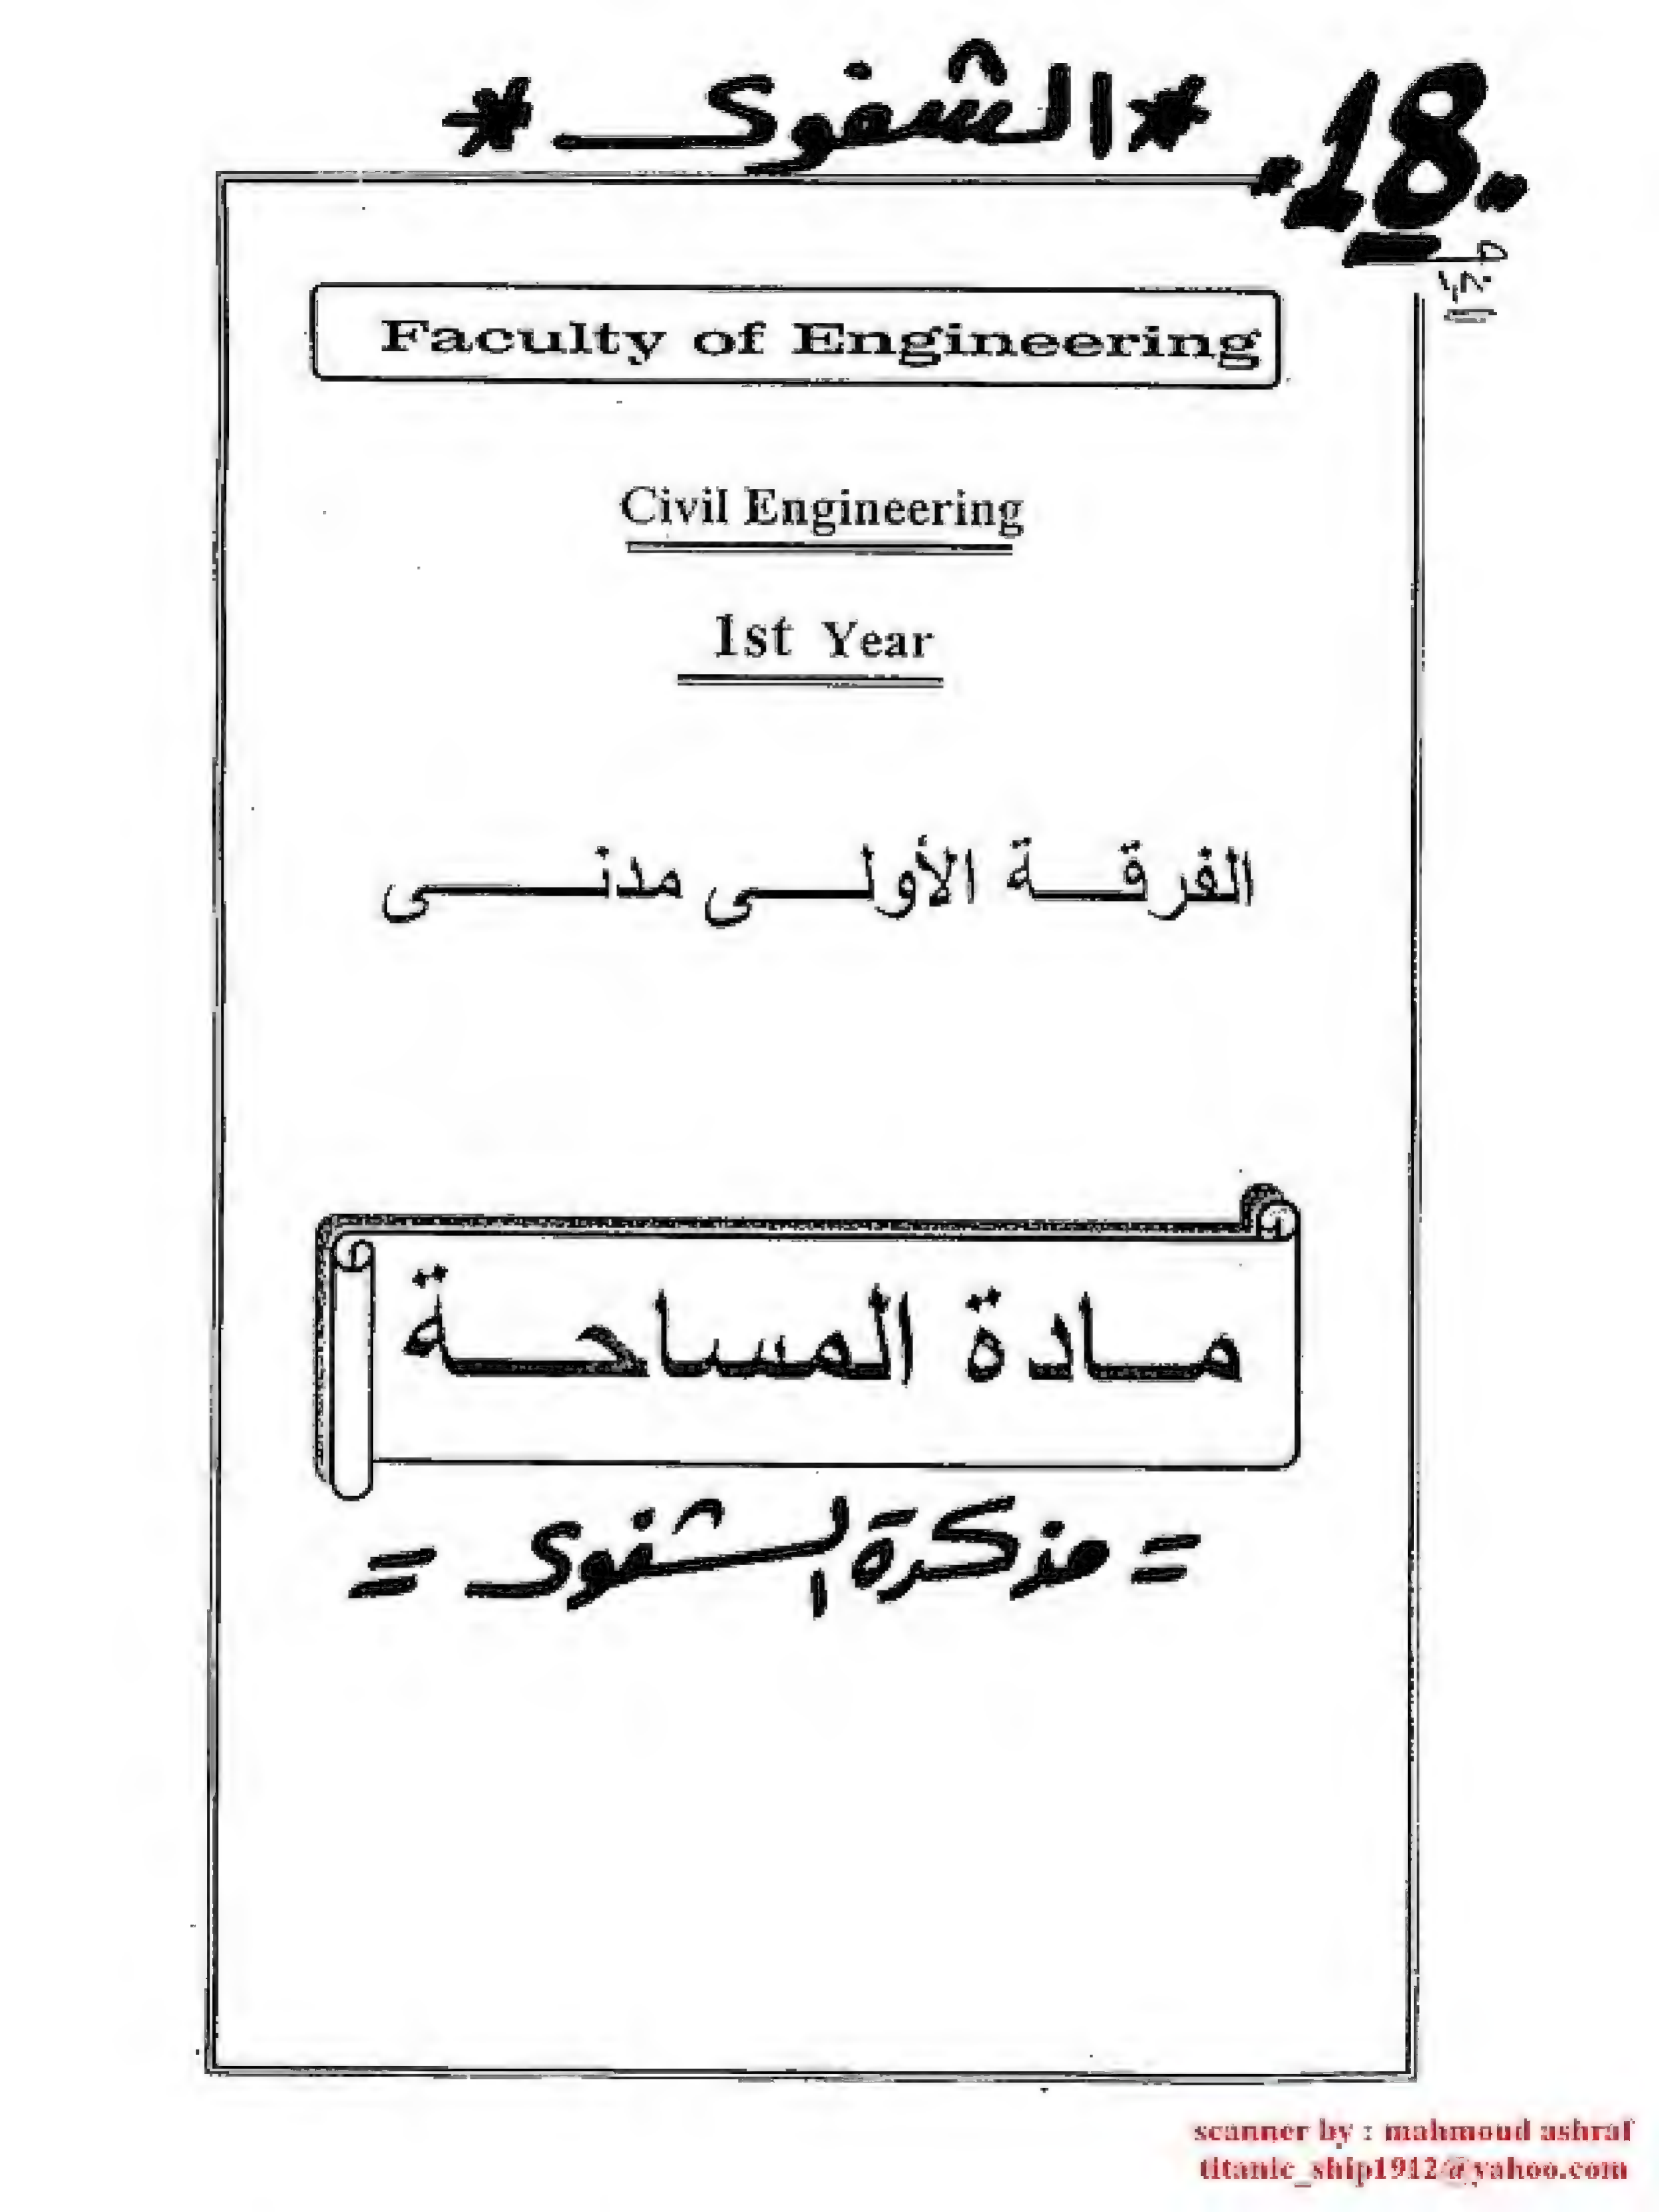 *الشفوى*
.18.
Faculty of Engineering
Civil Engineering
1st Year
الفرقة الأولى مدنى
مادة المساحة
= مذكرة الشفوى =
scanner by : mahmoud ashraf
titanic_ship1912@yahoo.com